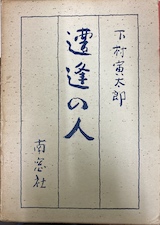 下村寅太郎
遭逢の人
南窓社